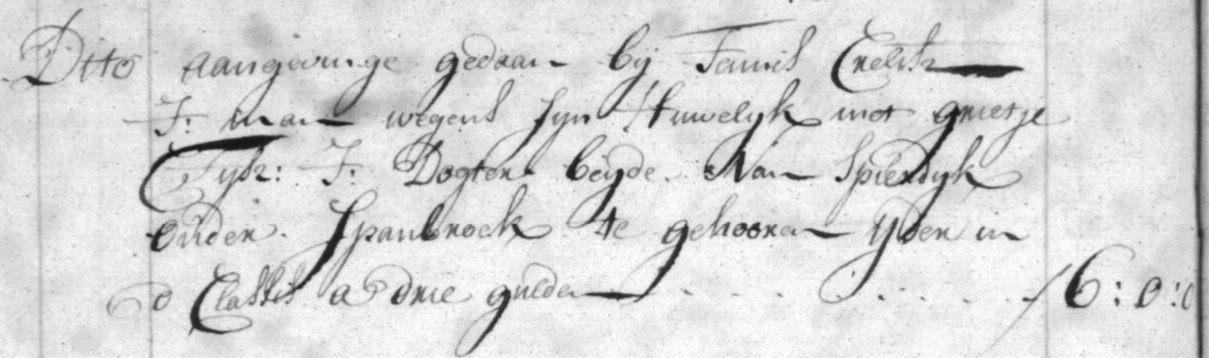 Ditto aangevinge gedaan bij Teunis Crelisz
J: man wegens syn Huwelyk met grietje
Tysz: J: Dogter beyde van Spierdyk
onder Spanbroek te gehooren yder in
d Classis a drie gulden . . . . . . . f 6:0:0